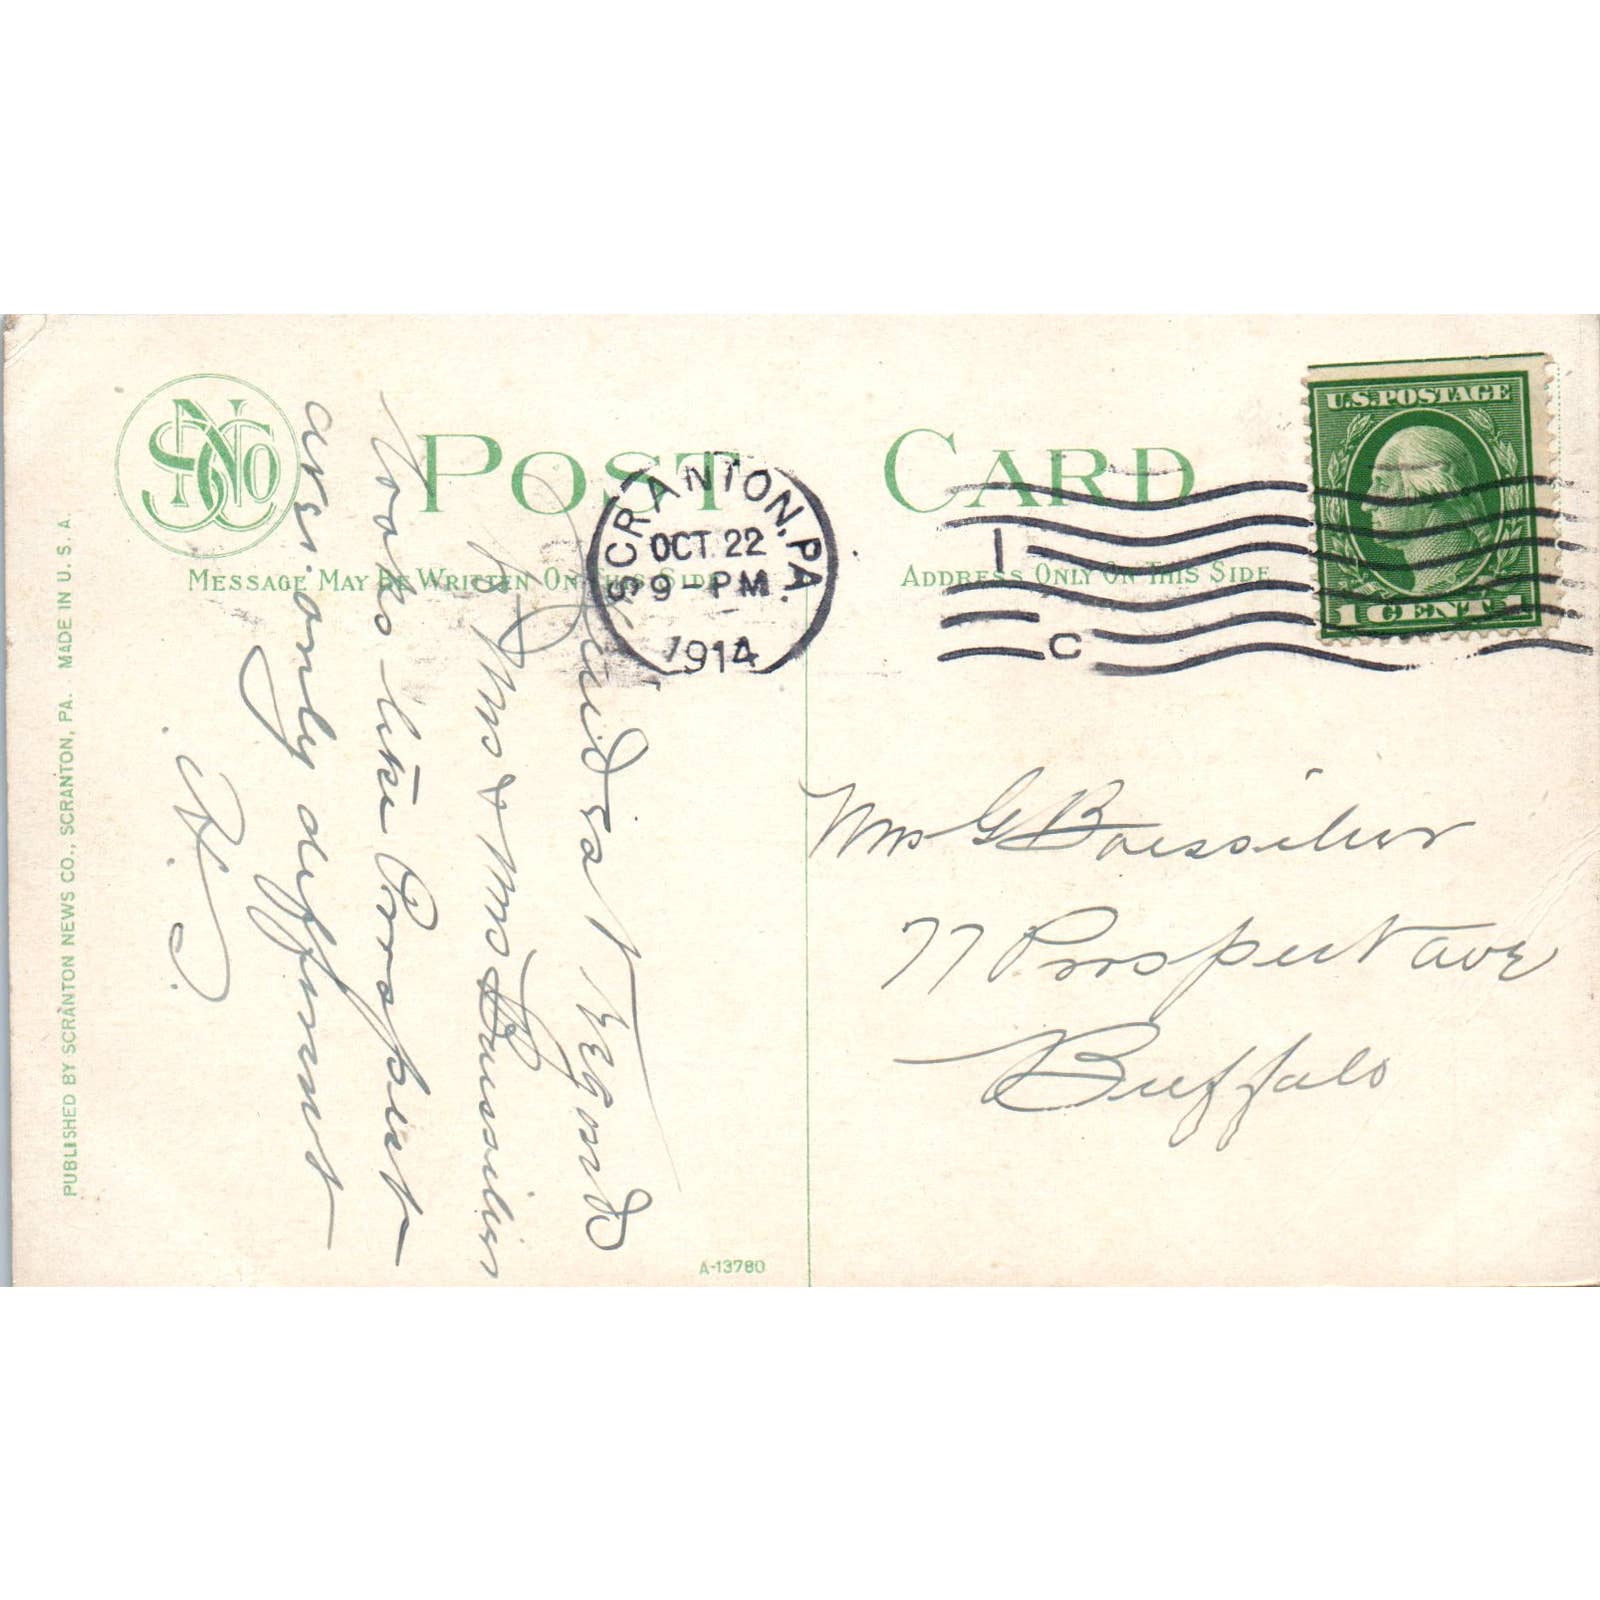 POST CARD
MESSAGE MAY BE WRITTEN ON THIS SIDE
ADDRESS ONLY ON THIS SIDE
SNCO
SCRANTON, PA.
OCT 22
9-PM
1914
1
C
U.S. POSTAGE
1 CENT 1
Kindest Regards
to Mrs & Mrs
looks like Prospect
ave. only different
PUBLISHED BY SCRANTON NEWS CO., SCRANTON, PA. MADE IN U. S. A.
A-13780
Mrs G
77 Prospect ave
Buffalo